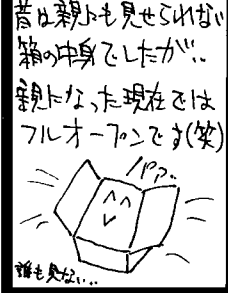 昔は親にも見せられない
箱の中身でしたが..
親になった現在では
フルオープンです(笑)
パァ..
誰も見ない...